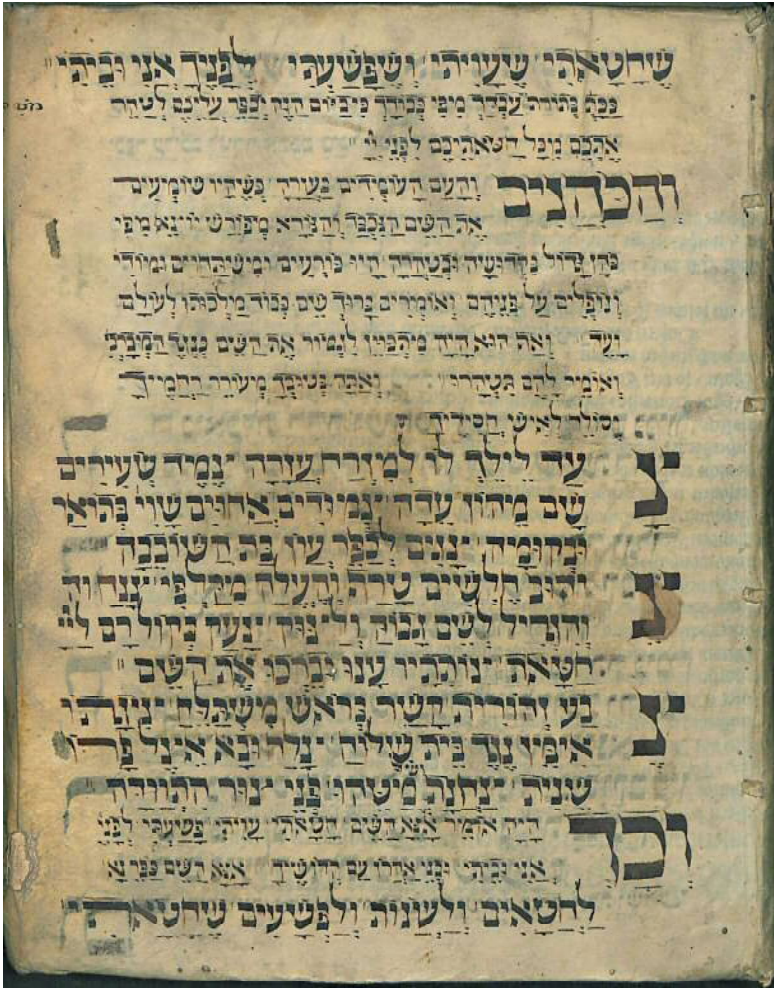 שֶׁחָטָאתִי שֶׁעָוִיתִי וְשֶׁפָּשַׁעְתִּי לְפָנֶיךָ אֲנִי וּבֵיתִי
ככת׳ בתורת עבדך מפי כבודך כי ביום הזה יכפר עליכם לטהר
אתכם מכל חטאתיכם לפני יי
והכהנים והעם העומדים בעזרה כשהיו שומעים
את השם הנכבד והנורא מפורש יוצא מפי
כהן גדול בקדושה ובטהרה היו כורעים ומשתחוים ומודים
ונופלים על פניהם ואומרים ברוך שם כבוד מלכותו לעולם
ועד ואף הוא היה מתכוין לגמור את השם כנגד המברכי׳
ואומר להם תטהרו ואתה בטובך מעורר רחמיך
וסולח לאיש חסידיך
צעד לילך לו למזרח עזרה צמד שעירים
שם מהון עדה צמודים אחוים שוי בתואר
ובקומה צגים לכפר עון בת השובבה
טרף והעלה מקלפי
והגדיל לשם גבוה צעק בקול רם ליי
חטאת צותתיו ענו וברכו את השם
צבע זהורית קשר בראש משתלח
אימון נגד בית שילוח צלח ובא אצל פרו
שנית צחנת מטהו פני צור התוודה
וכך היה אומר אנא השם חטאתי עויתי פשעתי לפניך
אני וביתי ובני אהרן עם קדושיך אנא השם כפר נא
לַחֲטָאִים וְלָעֲוֹנוֹת וְלַפְּשָׁעִים שֶׁחָטָאתִי